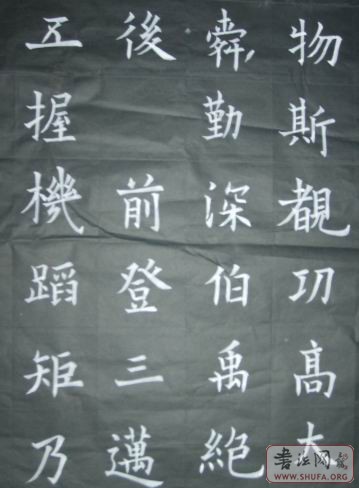 物斯覩功高大
舜勤深伯禹絶
後前登三邁
五握機蹈矩乃
书法网
WWW.SHUFA.ORG